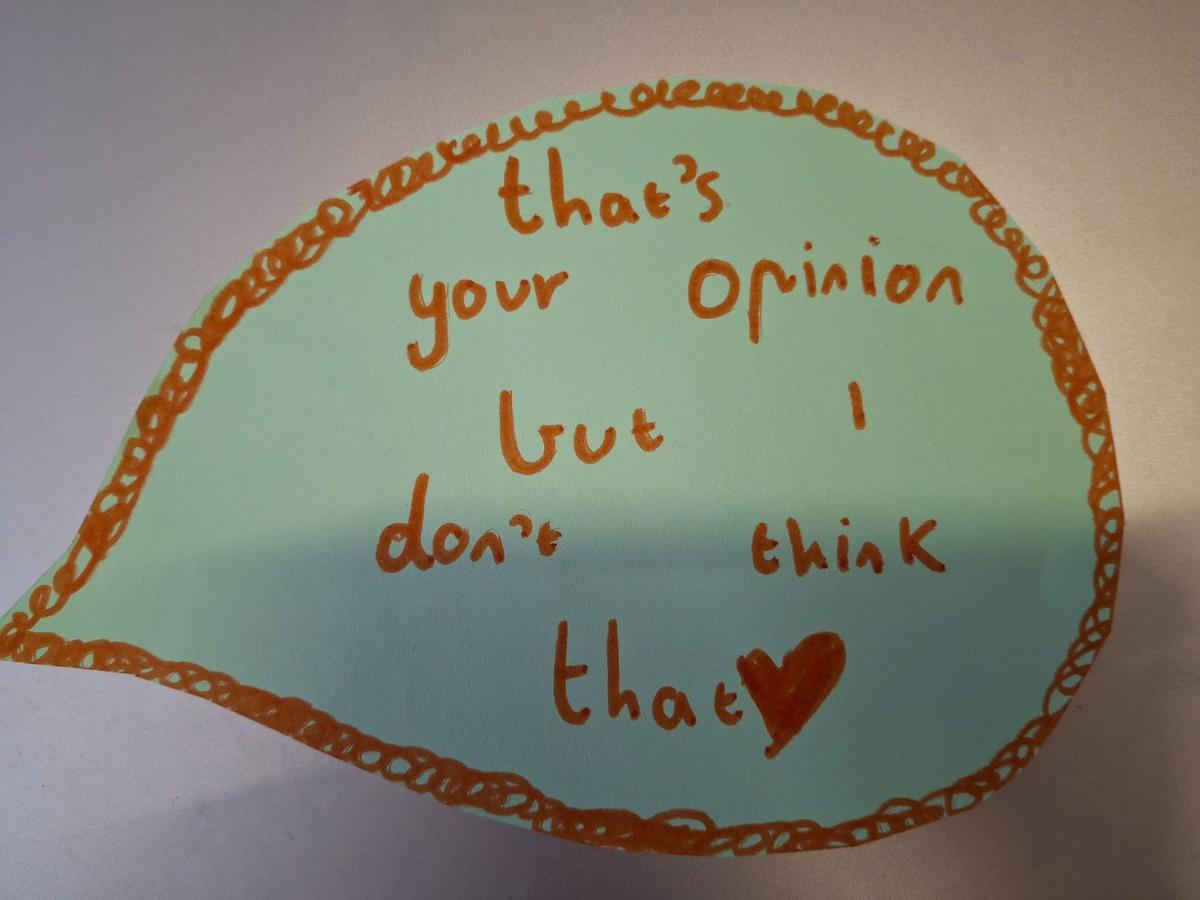 that's
your opinion
but I
don't think
that♥